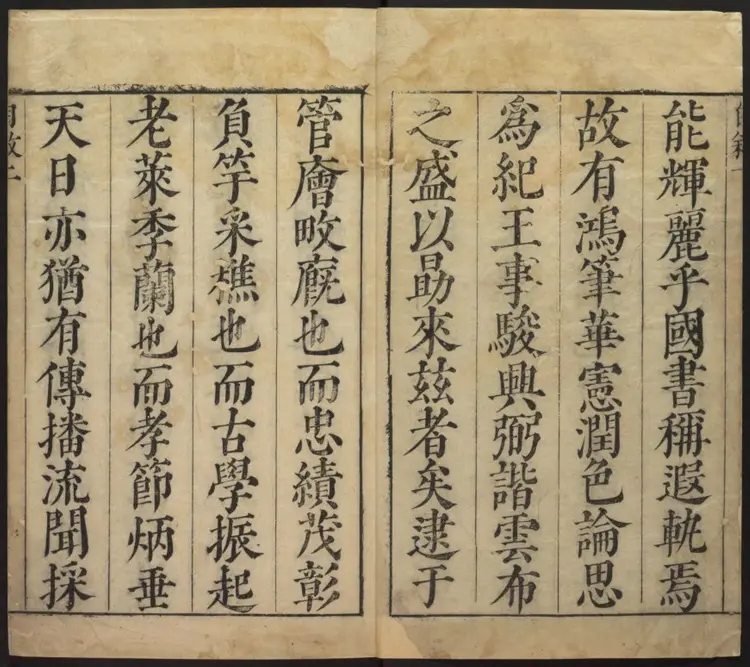 能輝麗乎國書稱遐軌焉
故有鴻筆華憲潤色論思
爲紀王事駿興弼諧雲布
之盛以勗來兹者矣逮于
管廥畋廐也而忠績茂彰
負竽采樵也而古學振起
老萊季蘭也而孝節炳垂
天日亦猶有傳播流聞採